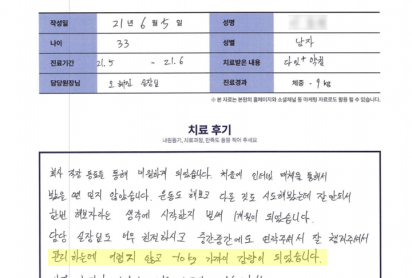 작성일 21년 6월 5일 성명
나이 33 성별 남자
진료기간 21.5 - 21.6 치료받은 내용 다이어트 + 약침
담당원장님 원장님 진료결과 체중 -9kg
※ 본 자료는 본원의 홈페이지와 소셜채널 등 마케팅 자료로도 활용 될 수 있습니다.
치료 후기
내원동기, 치료과정, 만족도 등을 적어 주세요
회사 직장 동료를 통해 내원하게 되었습니다. 처음에 인터넷 매체를 통해서
봤을 땐 믿지 않았습니다. 운동도 해보고 다른 것도 시도해봤는데 잘 안되서
한번 해보자라는 생각에 시작한지 벌써 1개월이 되었습니다.
담당 실장님도 너무 친절하시고 중간중간에도 연락주셔서 잘 챙겨주셔서
관리하는데 어렵지 않고 70kg 가까이 감량이 되었습니다.